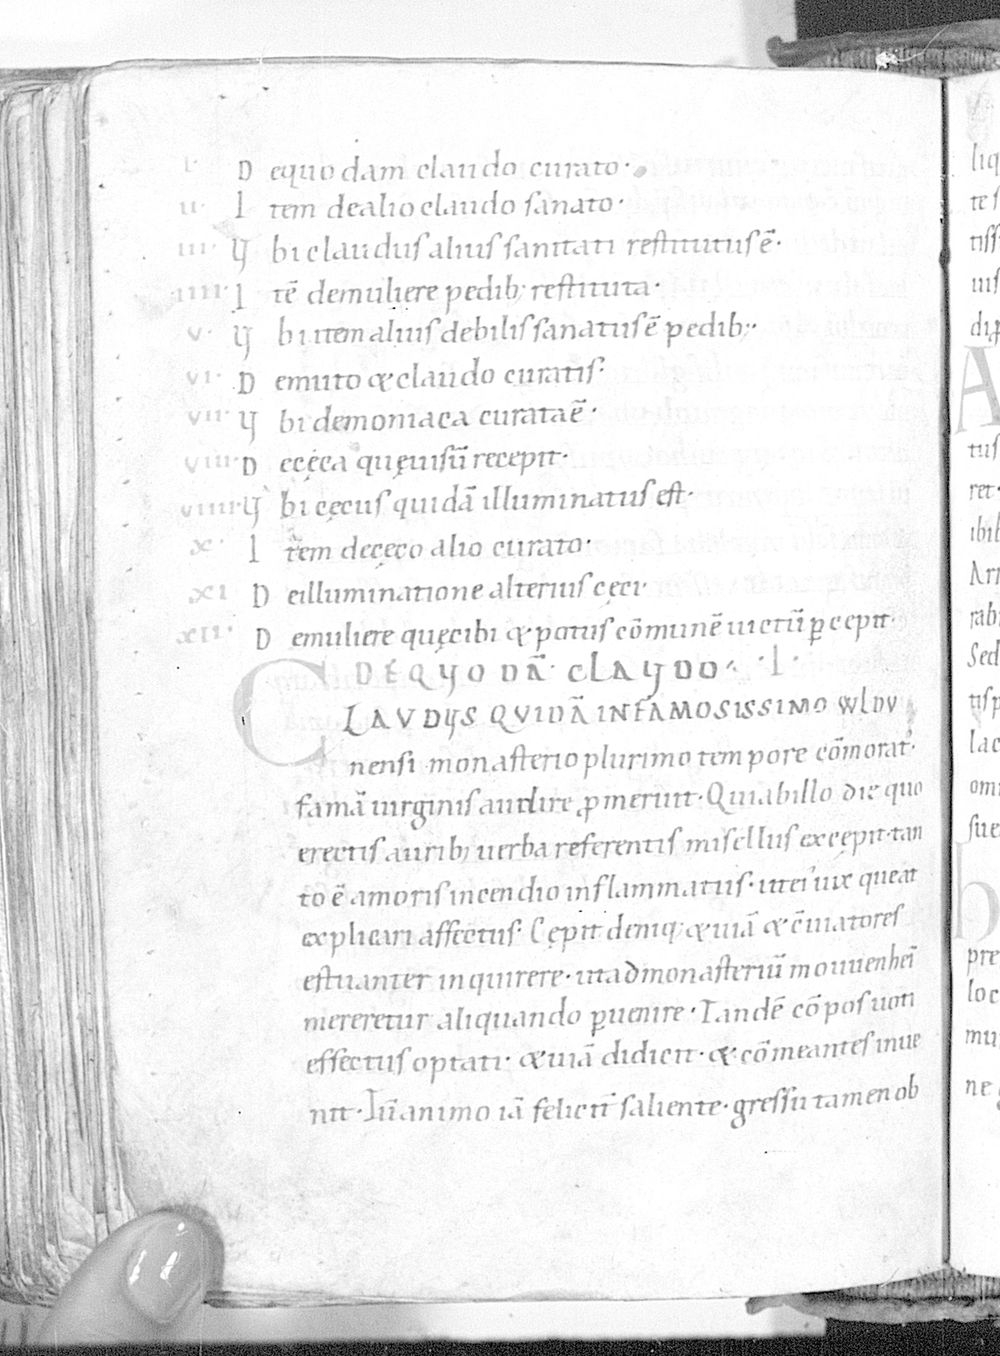 I· D equodam claudo curato·
II· I tem dealio claudo sanato·
III· U bi claudus alius sanitati restitutus ē·
IIII· I tē demuliere pedib; restituta·
V· U bi item alius debilis sanatus ē pedib;·
VI· D emuto & claudo curatis·
VII· U bi demoniaca curata ē·
VIII· D ecęca quę uisū recepit·
VIIII· U bi cęcus quidā illuminatus est·
X· I tem decęco alio curato·
XI D eilluminatione alterius cęci·
XII· D emuliere quę cibi & potus cōmunē uictū p̄cepit·
DE QUODĀ CLAUDO· I·
CLAUDUS QUIDĀ INFAMOSISSIMO WLDU
nensi monasterio plurimo tempore cōmorat·
famā uirginis audire p̄meruit· Qui ab illo die quo
erectis aurib; uerba referentis misellus excepit· tan
to ē amoris incendio inflammatus· ut ei' uix queat
explicari affectus· Cępit deniq; & uiā & c̄uiatores
estuanter inquirere· ut ad monasteriū mouuenheī
mereretur aliquando p̄uenire· Tandē cōpos uoti
effectus optati· & uiā didicit· & cōmeantes inue
nit· Tū animo iā felicit̄ saliente· gressu tamen ob
liq
te s
tiss
uis
A
tus
ret·
ibil
rab
Sed
tis p
lac
om
sue
h
pre
loc
mu
ne